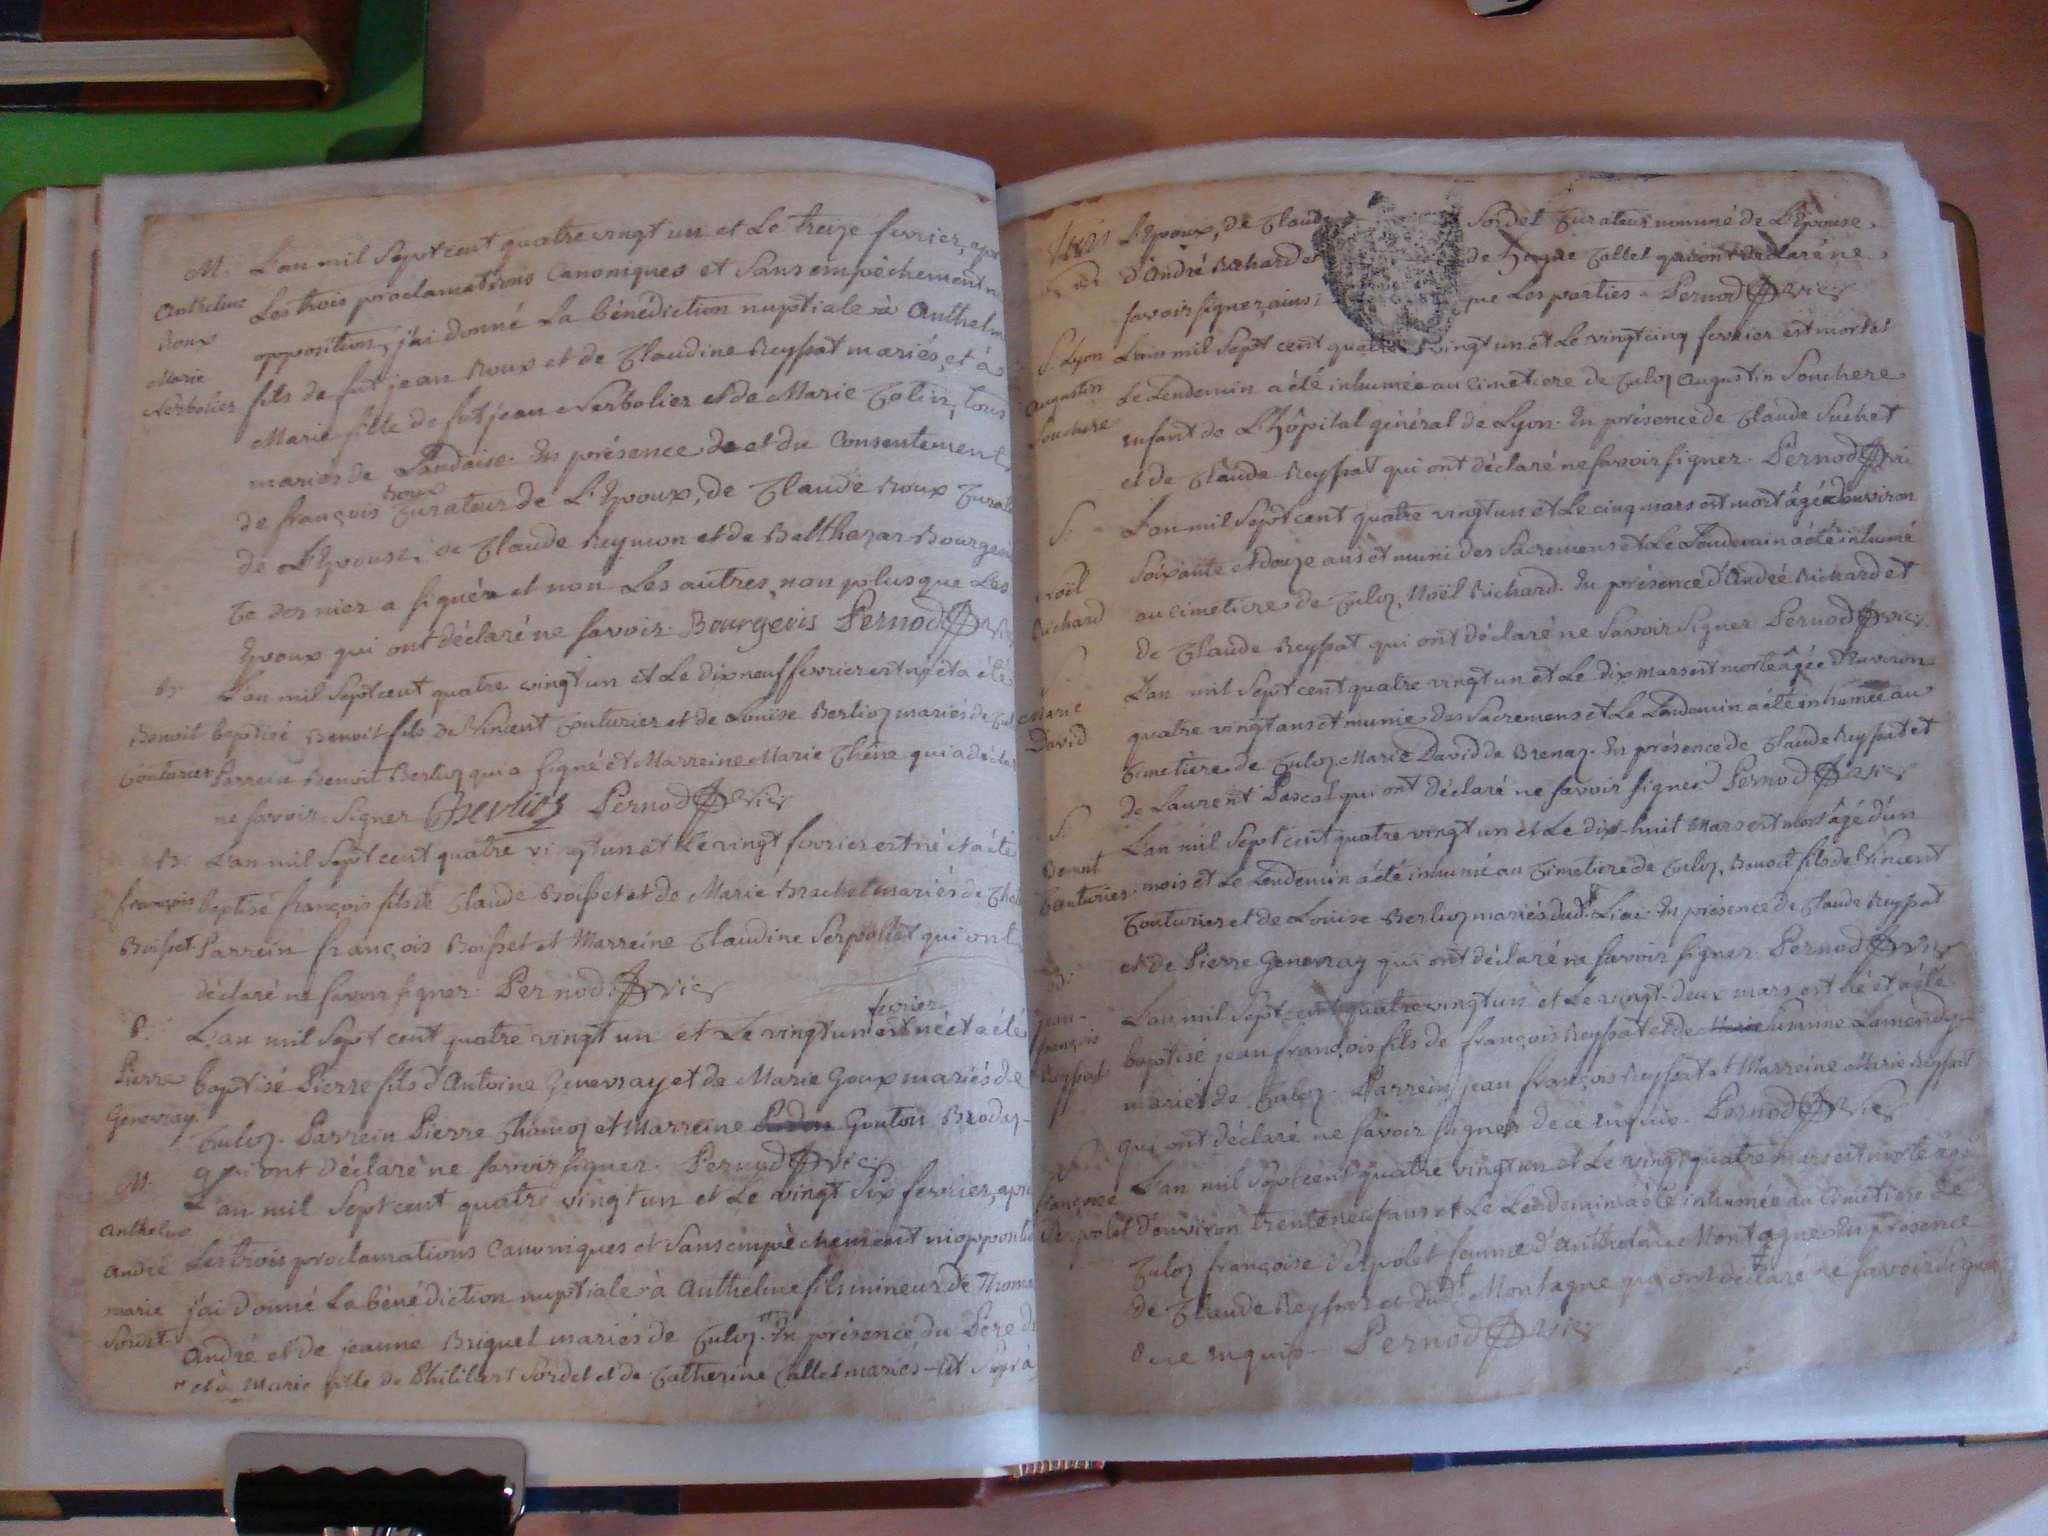 M. L'an mil Sept cent quatre vingt un et Le treize fevrier, apr
Anthelme Les trois proclamations Canoniques et Sans empêchement n
Roux opposition, j'ai donné La bénédiction nuptiale à Anthelm
Marie fils de fut jean Roux et de Claudine Reyssat mariés, et à
Nerbolier Marie fille de fut jean Nerbolier et de Marie Colin, tous
mariés de Pandaise. En présence de et du Consentement
de françois Roux Curateur de L'Epoux, de Claude Roux Curat
de L'Epouse, de Claude Reymon et de Balthazar Bourgeois
Ce dernier a signé et non Les autres, non plus que Les
Epoux qui ont déclaré ne savoir. Bourgeois Pernod vic
B. L'an mil Sept cent quatre vingt un et Le dix neuf fevrier est né et a été
Benoit baptisé Benoit fils de Vincent Couturier et de Louise Berlioz mariés de Cul
Couturier Parrein Benoit Berlioz qui a signé et Marreine Marie Chêne qui a déclar
ne savoir Signer Berlioz Pernod vic
B. L'an mil Sept cent quatre vingt un et Le vingt fevrier est né et a été
françois baptisé françois fils de Claude Boisset et de Marie Brachet mariés de
Boisset. Parrein françois Boisset et Marreine Claudine Serpollet qui ont
déclaré ne savoir signer. Pernod vic
B. L'an mil Sept cent quatre vingt un et Le vingt un fevrier est né et a été
Pierre baptisé Pierre fils d'Antoine Genevray et de Marie Goux mariés de
Genevray. Culoz. Parrein Pierre Chamoz et Marreine Gouton Brodaz
qui ont déclaré ne savoir signer. Pernod vic
M. L'an mil Sept cent quatre vingt un et Le vingt Six fevrier, apr
Anthelme Les trois proclamations Canoniques et Sans empêchement ni oppositi
André j'ai donné La bénédiction nuptiale à Anthelme fils mineur de Thoma
marie André et de jeanne Briquet mariés de Culoz. En présence du Père d
Sordet et à Marie fille de Philibert Sordet et de Catherine Callet mariés
L'Epoux, de Claud Sordet Curateur nommé de L'Epouse,
d'André Richard et de Callet qui ont déclaré ne
savoir signer, ainsi que Les parties. Pernod vic
S. Lyon L'an mil Sept cent quatre vingt un et Le vingt cinq fevrier est mort et
Augustin Le Lendemin a été inhumé au Cimetiere de Culoz Augustin Souchere
Souchere enfant de L'Hôpital général de Lyon. En présence de Claude Suchet
et de Claude Reyssat qui ont déclaré ne savoir signer. Pernod vi
S. L'an mil Sept cent quatre vingt un et Le cinq mars est mort âgé d'environ
soixante et douze ans et muni des Sacremens et Le Lendemin a été inhumé
Noël au Cimetiere de Culoz, Noël Richard. En présence d'André Richard et
Richard de Claude Reyssat qui ont déclaré ne Savoir Signer Pernod vic
S. L'an mil Sept cent quatre vingt un et Le dix mars est morte âgée d'environ
Marie quatre vingt ans et munie des Sacremens et Le Lendemin a été inhumée au
David Cimetiere de Culoz Marie David de Brenaz. En présence de Claude Reyssat et
de Laurent Pascal qui ont déclaré ne savoir signer. Pernod vic
S. L'an mil Sept cent quatre vingt un et Le dix-huit Mars est mort âgé d'un
Benoit mois et Le Lendemin a été inhumé au Cimetiere de Culoz, Benoit fils de Vincent
Couturier. Couturier et de Louise Berlioz mariés dud. Lieu. En présence de Claude Reyssat
et de Pierre Genevray qui ont déclaré ne savoir signer. Pernod vic
B. L'an mil Sept cent quatre vingt un et Le vingt-deux mars est né et a été
jean- baptisé jean françois fils de françois Reyssat et de Lamendy
françois mariés de Culoz. Parrein jean françois Reyssat et Marreine Marie Reyssat
Reyssat qui ont déclaré ne savoir signer de ce enquis. Pernod vic
S. L'an mil Sept cent quatre vingt un et Le vingt quatre mars est morte âgé
françoise d'environ trente neuf ans et Le Lendemin a été inhumée au Cimetiere de
Serpolet Culoz françoise Serpolet femme d'Anthelme Montagne. En présence
de Claude Reyssat et dudt Montagne qui ont déclaré ne savoir Signer
de ce enquis. Pernod vic